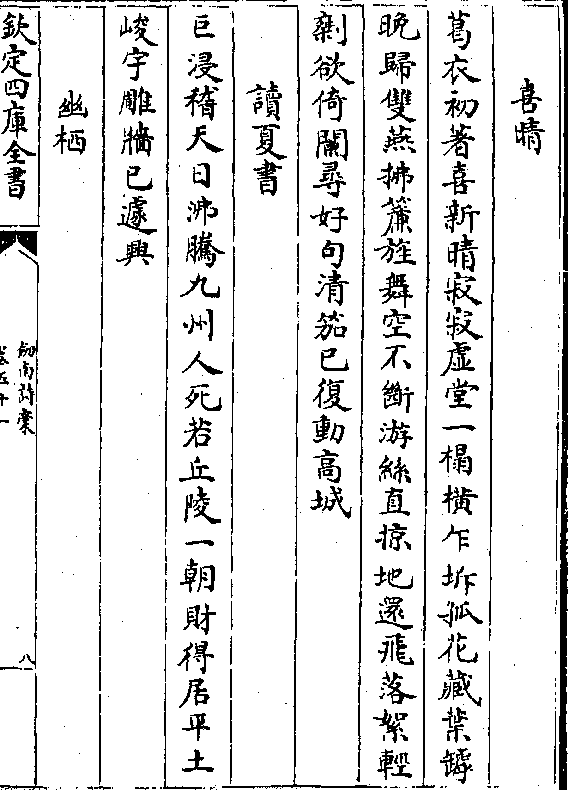 喜晴
葛衣初著喜新晴寂寂虚堂一榻横乍坼孤花藏葉罅
晩歸雙燕拂簾旌舞空不斷游絲直掠地還飛落絮輕
剰欲倚闌尋好句清笳已復動髙城
讀夏書
巨浸稽天日沸騰九州人死若丘陵一朝財得居平土
峻宇雕牆已遽興
幽栖
欽定四庫全書
劍南詩稾
卷五十一
八